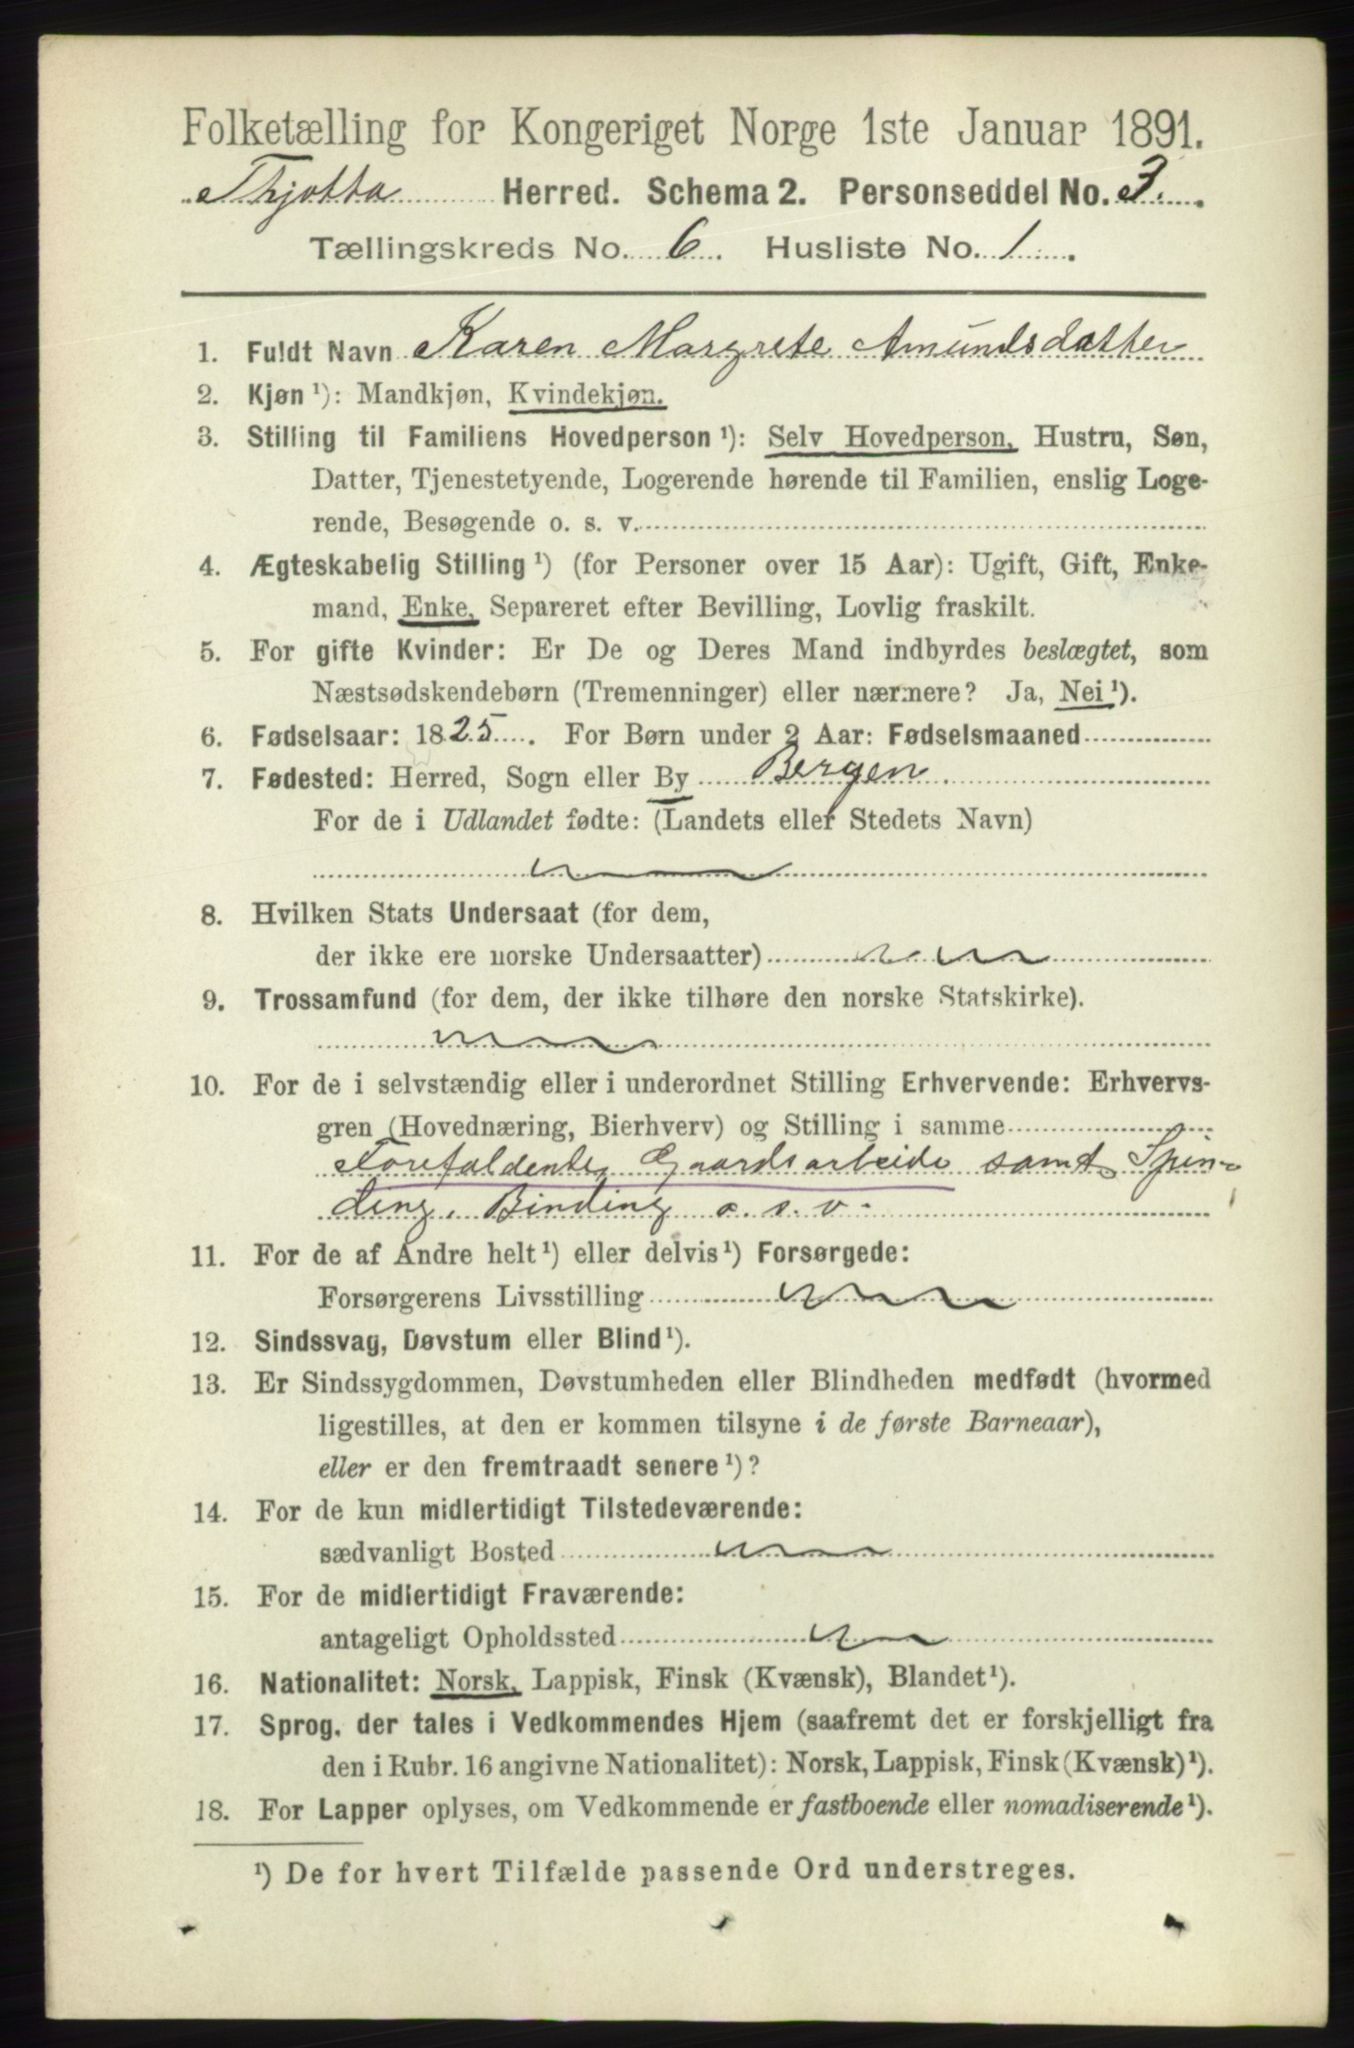 Folketælling for Kongeriget Norge 1ste Januar 1891.
Thjøtta Herred. Schema 2. Personseddel No. 3.
Tællingskreds No. 6. Husliste No. 1.
1. Fuldt Navn Karen Margrete Amundsdatter
2. Kjøn ¹): Mandkjøn, Kvindekjøn.
3. Stilling til Familiens Hovedperson ¹): Selv Hovedperson, Hustru, Søn,
Datter, Tjenestetyende, Logerende hørende til Familien, enslig Loge-
rende, Besøgende o. s. v.
4. Ægteskabelig Stilling ¹) (for Personer over 15 Aar): Ugift, Gift, Enke-
mand, Enke, Separeret efter Bevilling, Lovlig fraskilt.
5. For gifte Kvinder: Er De og Deres Mand indbyrdes beslægtet, som
Næstsødskendebørn (Tremenninger) eller nærmere? Ja, Nei ¹).
6. Fødselsaar: 1825. For Børn under 2 Aar: Fødselsmaaned
7. Fødested: Herred, Sogn eller By Bergen.
For de i Udlandet fødte: (Landets eller Stedets Navn)
8. Hvilken Stats Undersaat (for dem,
der ikke ere norske Undersaatter)
9. Trossamfund (for dem, der ikke tilhøre den norske Statskirke).
10. For de i selvstændig eller i underordnet Stilling Erhvervende: Erhvervs-
gren (Hovednæring, Bierhverv) og Stilling i samme
Forefaldende Gaardsarbeide samt Spin-
ding, Binding o. s. v.
11. For de af Andre helt ¹) eller delvis ¹) Forsørgede:
Forsørgerens Livsstilling
12. Sindssvag, Døvstum eller Blind ¹).
13. Er Sindssygdommen, Døvstumheden eller Blindheden medfødt (hvormed
ligestilles, at den er kommen tilsyne i de første Barneaar),
eller er den fremtraadt senere ¹)?
14. For de kun midlertidigt Tilstedeværende:
sædvanligt Bosted
15. For de midlertidigt Fraværende:
antageligt Opholdssted
16. Nationalitet: Norsk, Lappisk, Finsk (Kvænsk), Blandet ¹).
17. Sprog, der tales i Vedkommendes Hjem (saafremt det er forskjelligt fra
den i Rubr. 16 angivne Nationalitet): Norsk, Lappisk, Finsk (Kvænsk) ¹).
18. For Lapper oplyses, om Vedkommende er fastboende eller nomadiserende ¹).
¹) De for hvert Tilfælde passende Ord understreges.